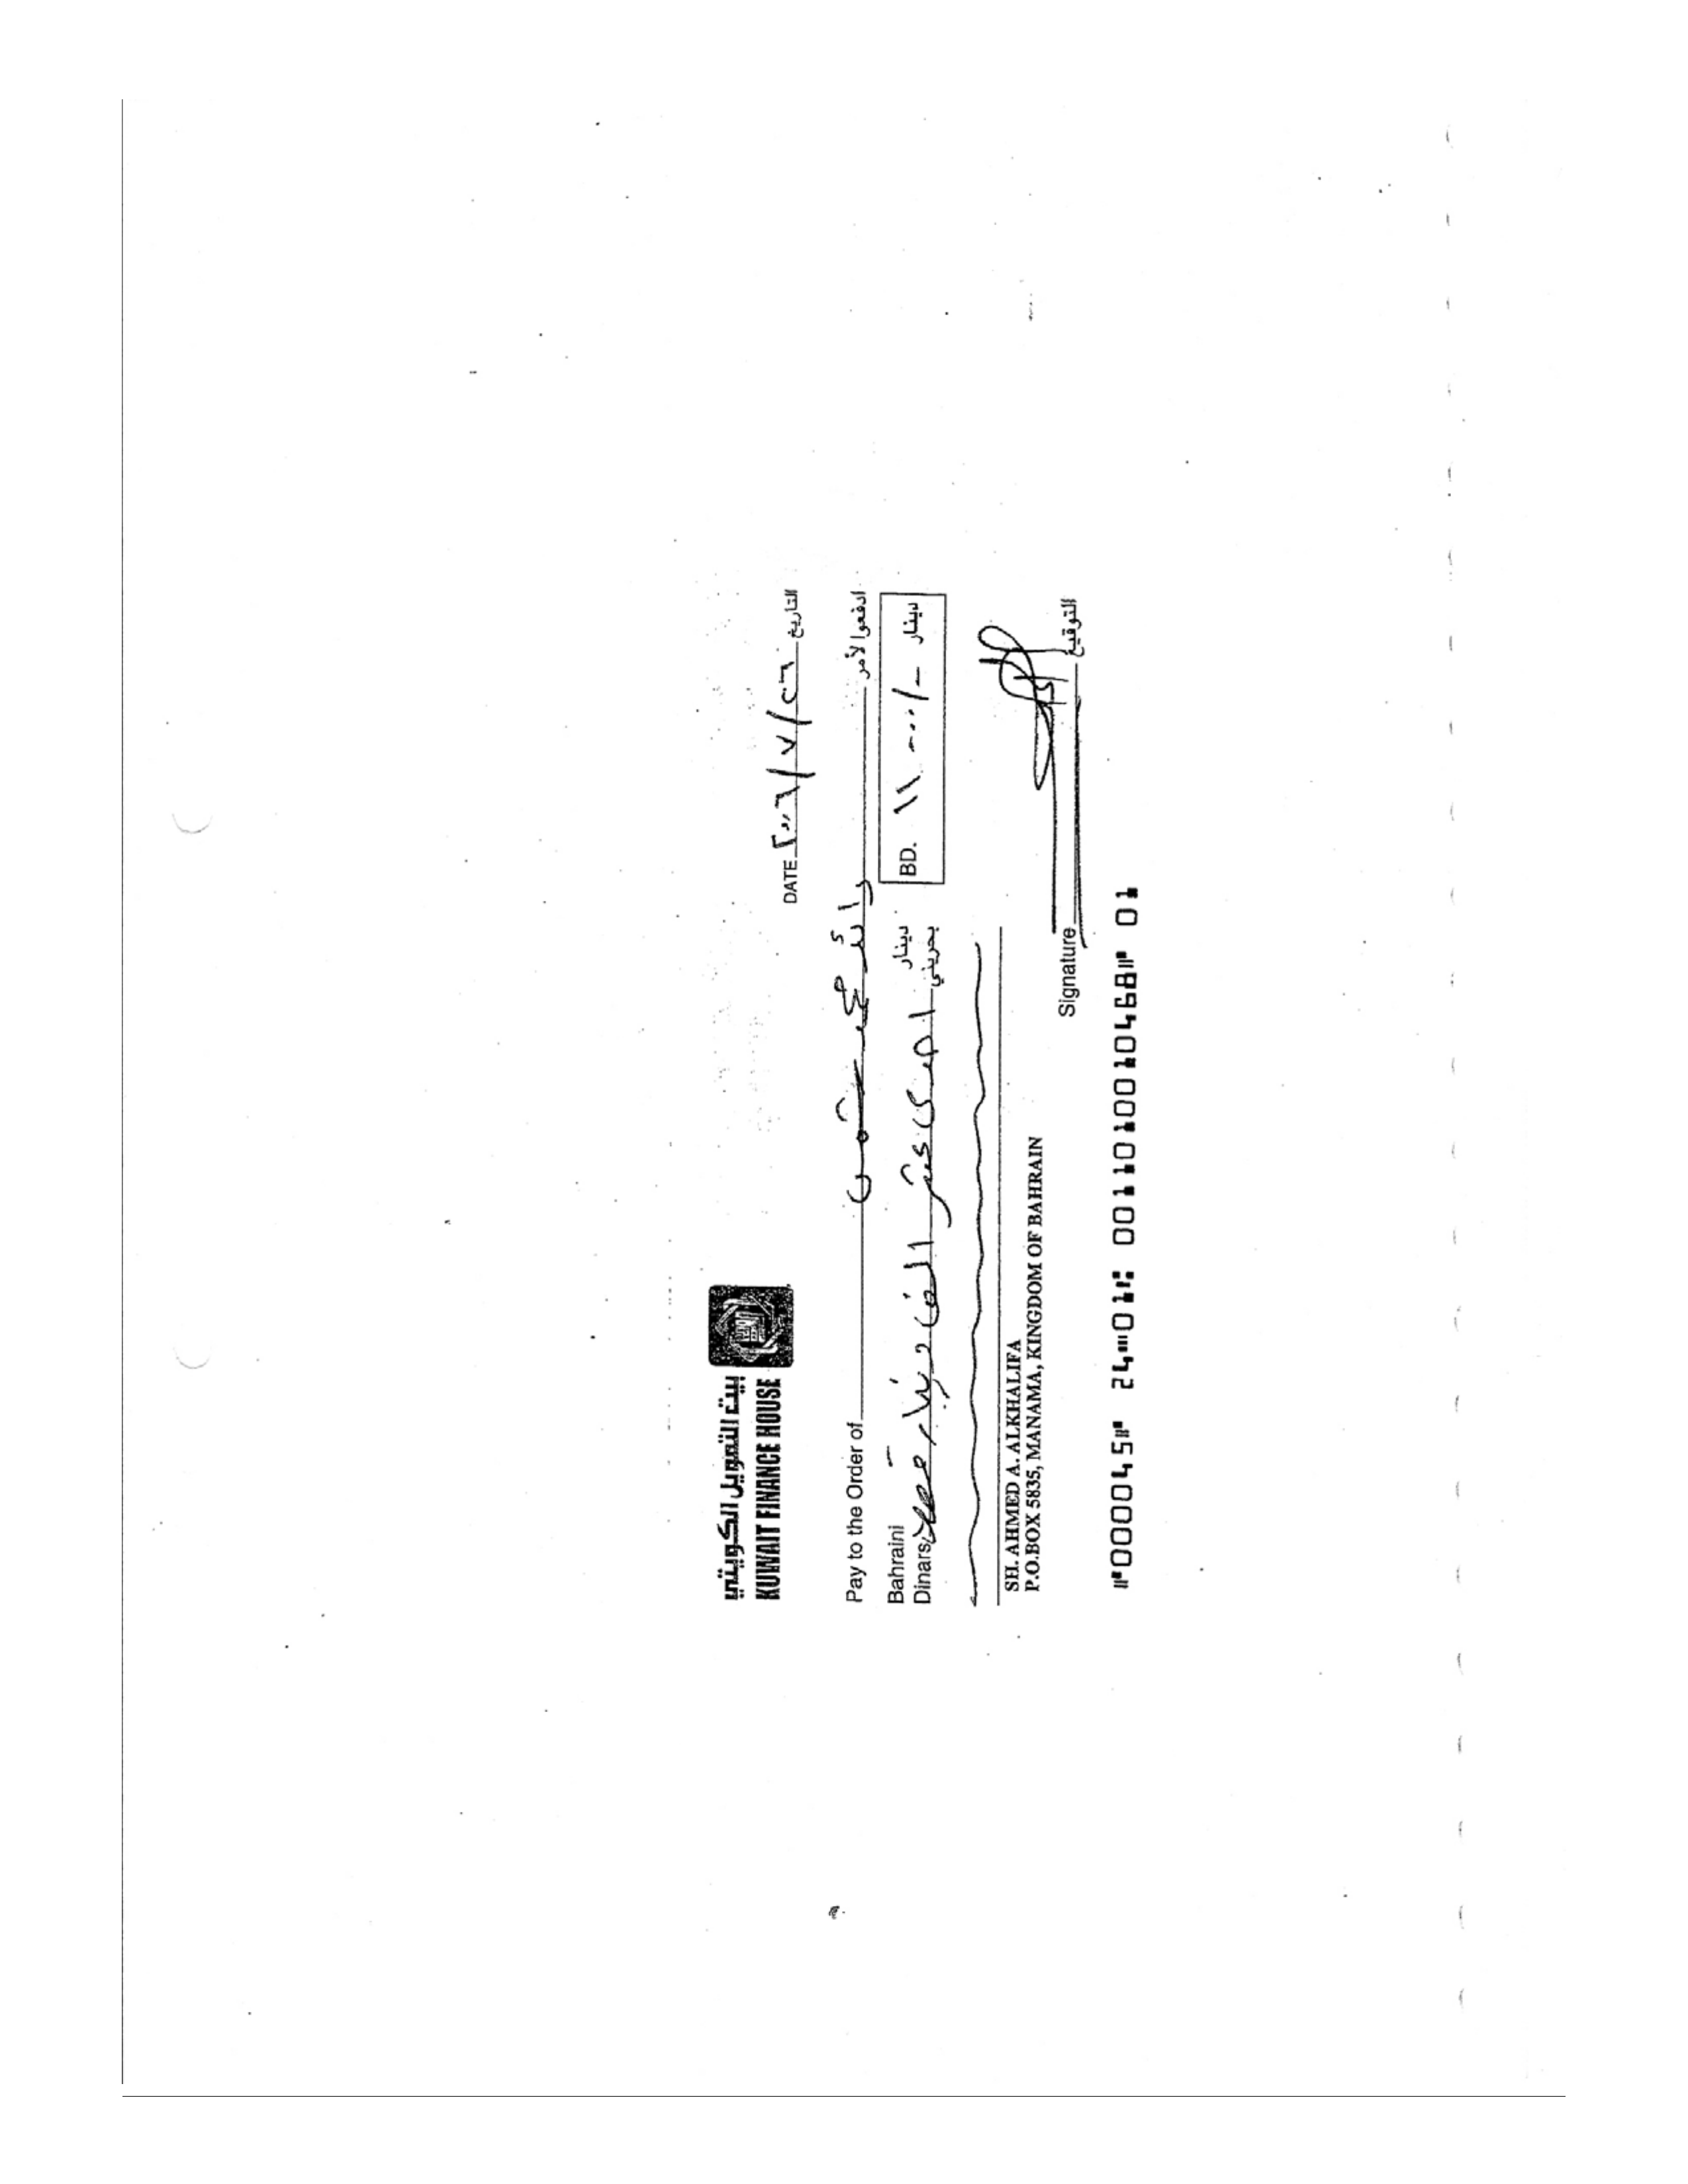 بيت التمويل الكويتي
KUWAIT FINANCE HOUSE
DATE ٢٠٠٦/٧/٢٦ التاريخ
Pay to the Order of رائد محمد شمس ادفعوا لأمر
Bahraini Dinars احدى عشر الف دينار فقط لاغير دينار بحريني
BD. ١١٠٠٠/- دينار
SH. AHMED A. ALKHALIFA
P.O.BOX 5835, MANAMA, KINGDOM OF BAHRAIN
Signature التوقيع
⑈000045⑈ 24⑉01⑆ 0011010010468⑈ 01